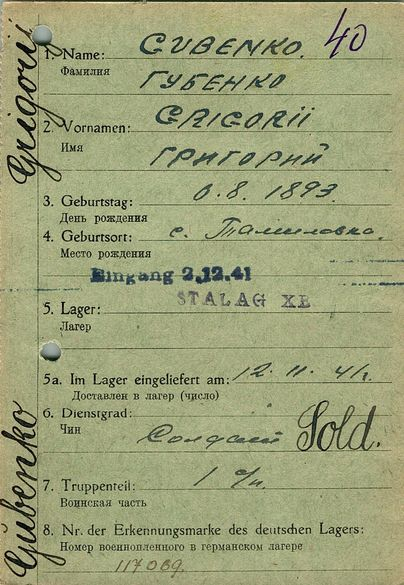 40
Grigorij
1. Name: GUBENKO.
Фамилия ГУБЕНКО
2. Vornamen: GRIGORII
Имя ГРИГОРИЙ
3. Geburtstag: 0.8. 1893.
День рождения
4. Geburtsort: с. Томиловка.
Место рождения
Eingang 2.12.41
STALAG XB
5. Lager:
Лагер
5a. Im Lager eingeliefert am: 12. 11. 41г.
Доставлен в лагер (число)
6. Dienstgrad:
Чин Солдат Sold.
7. Truppenteil:
Воинская часть
8. Nr. der Erkennungsmarke des deutschen Lagers:
Номер военнопленного в германском лагере
117069.
Gubenko